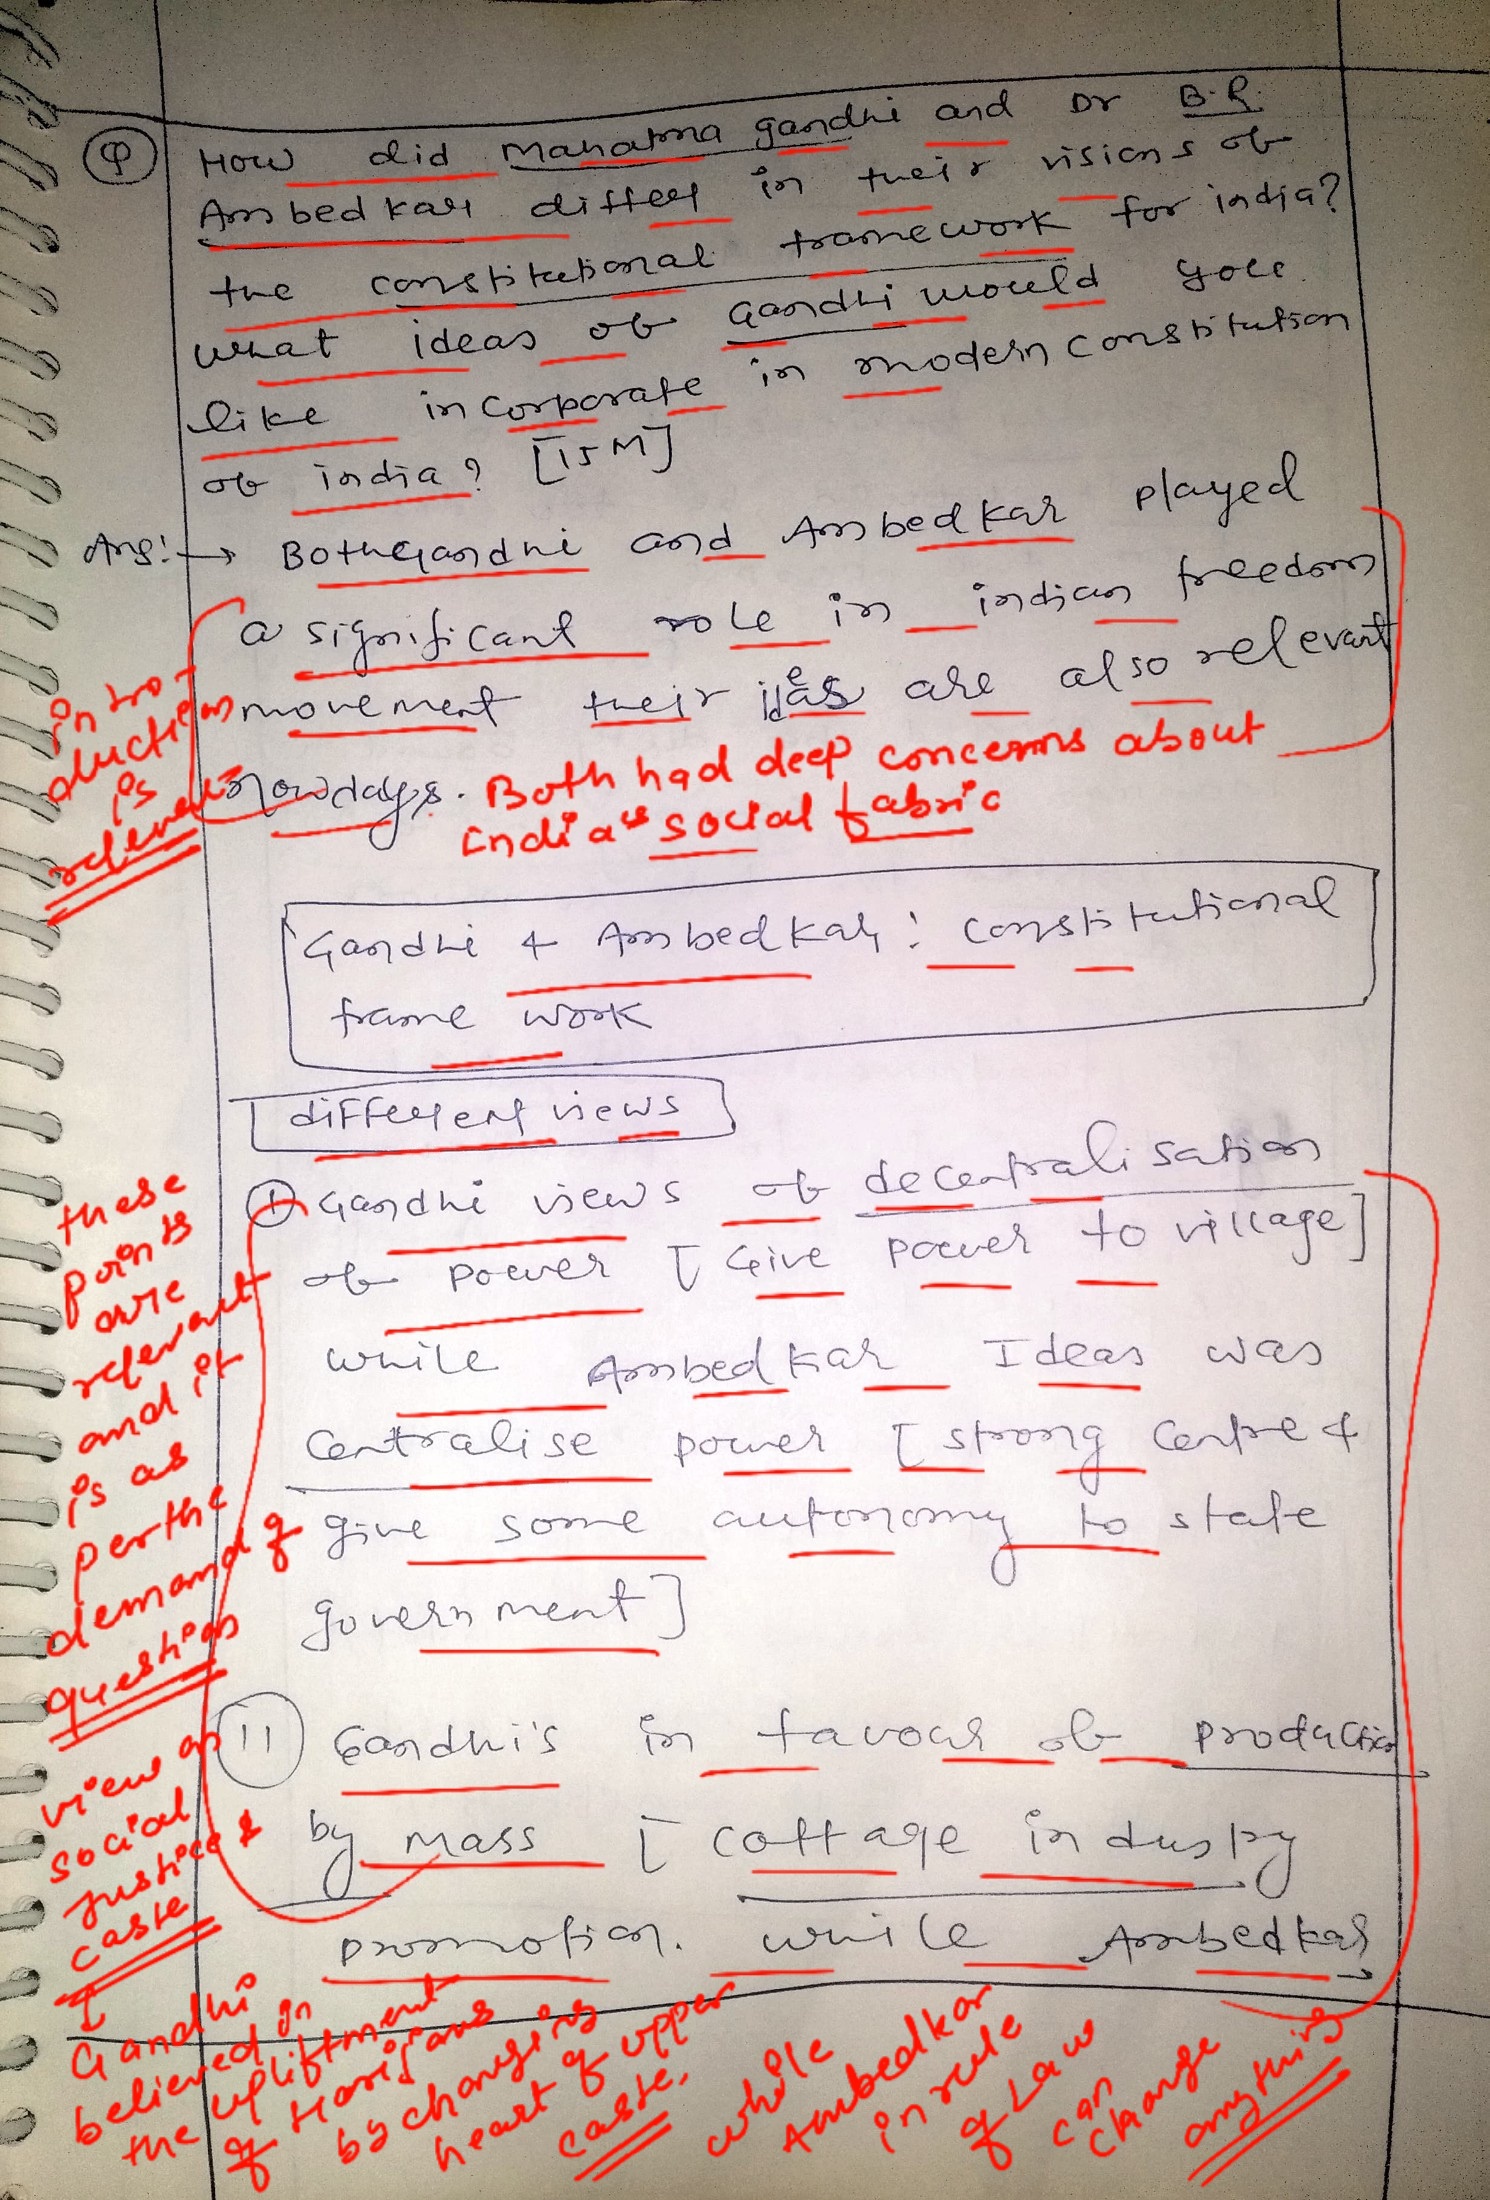 Q How did Mahatma gandhi and Dr B.R.
Ambedkar differ in their visions of
the constitutional framework for india?
What ideas of Gandhi would you
like incorporate in modern constitution
of india? [15M]
Ans:→ Both Gandhi and Ambedkar played
a significant role in indian freedom
movement their ideas are also relevant
nowdays. Both had deep concerns about
India's social fabric
intro-
duction
is
relevant
Gandhi & Ambedkar: constitutional
frame work
different views
I Gandhi views of decentralisation
of power [Give power to village]
while Ambedkar Ideas was
Centralise power [strong Centre &
give some autonomy to state
government]
these
points
are
relevant
and it
is as
per the
demand of
question
II Gandhi's in favour of production
by mass [cottage industry
promotion. while Ambedkar
view on
social
justice &
caste
Gandhi
believed in
the upliftment
of Harijans
by changing
heart of upper
caste.
while
Ambedkar
in rule
of Law
can
change
anything